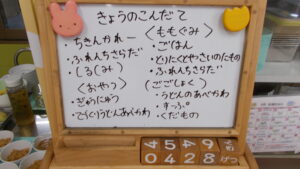 きょうのこんだて
・ちきんかれー
・ふれんちさらだ
・しるくみ)
〈おやつ〉
・ぎゅうにゅう
・てづくりうどんあべかわ
〈ももぐみ〉
・ごはん
・とりにくとやさいのにもの
・ふれんちさらだ
(ごごしょく)
・うどんのあべかわ
・すーぷ
・くだもの
4 5 4 9
0 4 2 8 げつ